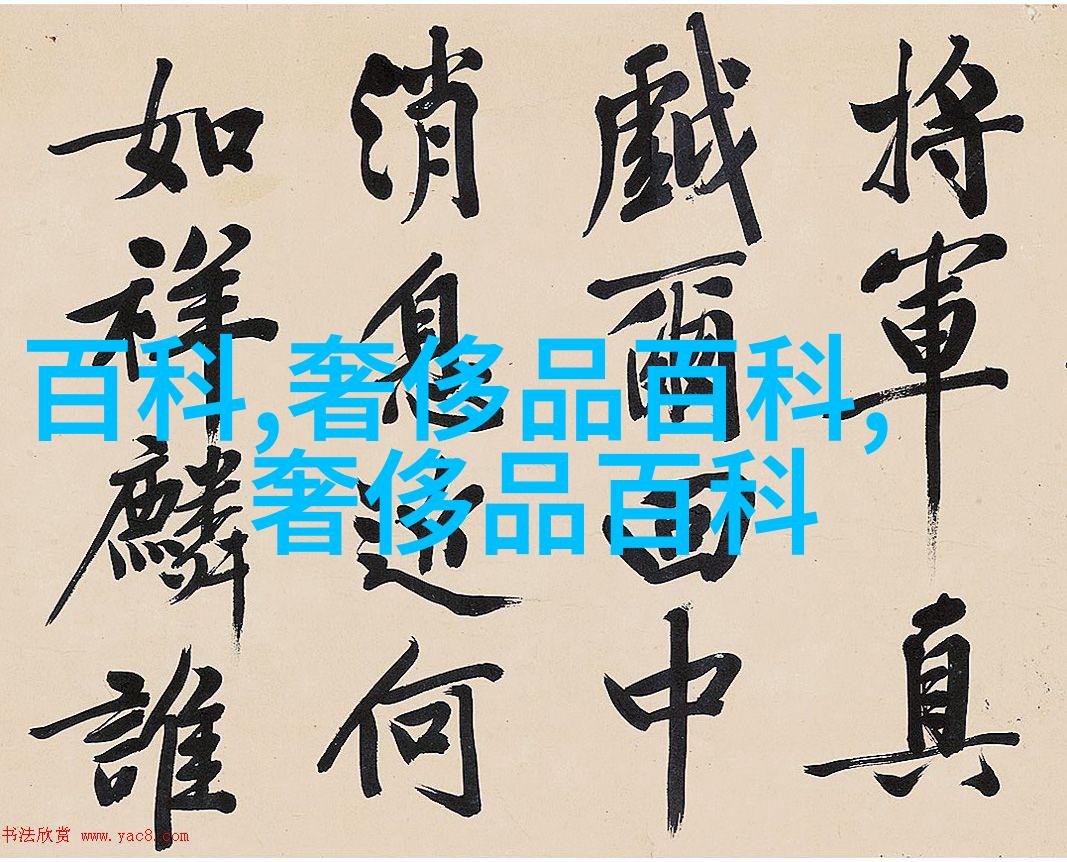 将軍真
戲爾中
消息何
如祥麟誰
百科,奢侈品百科,
奢侈品百科
书法欣赏 www.yac8.com